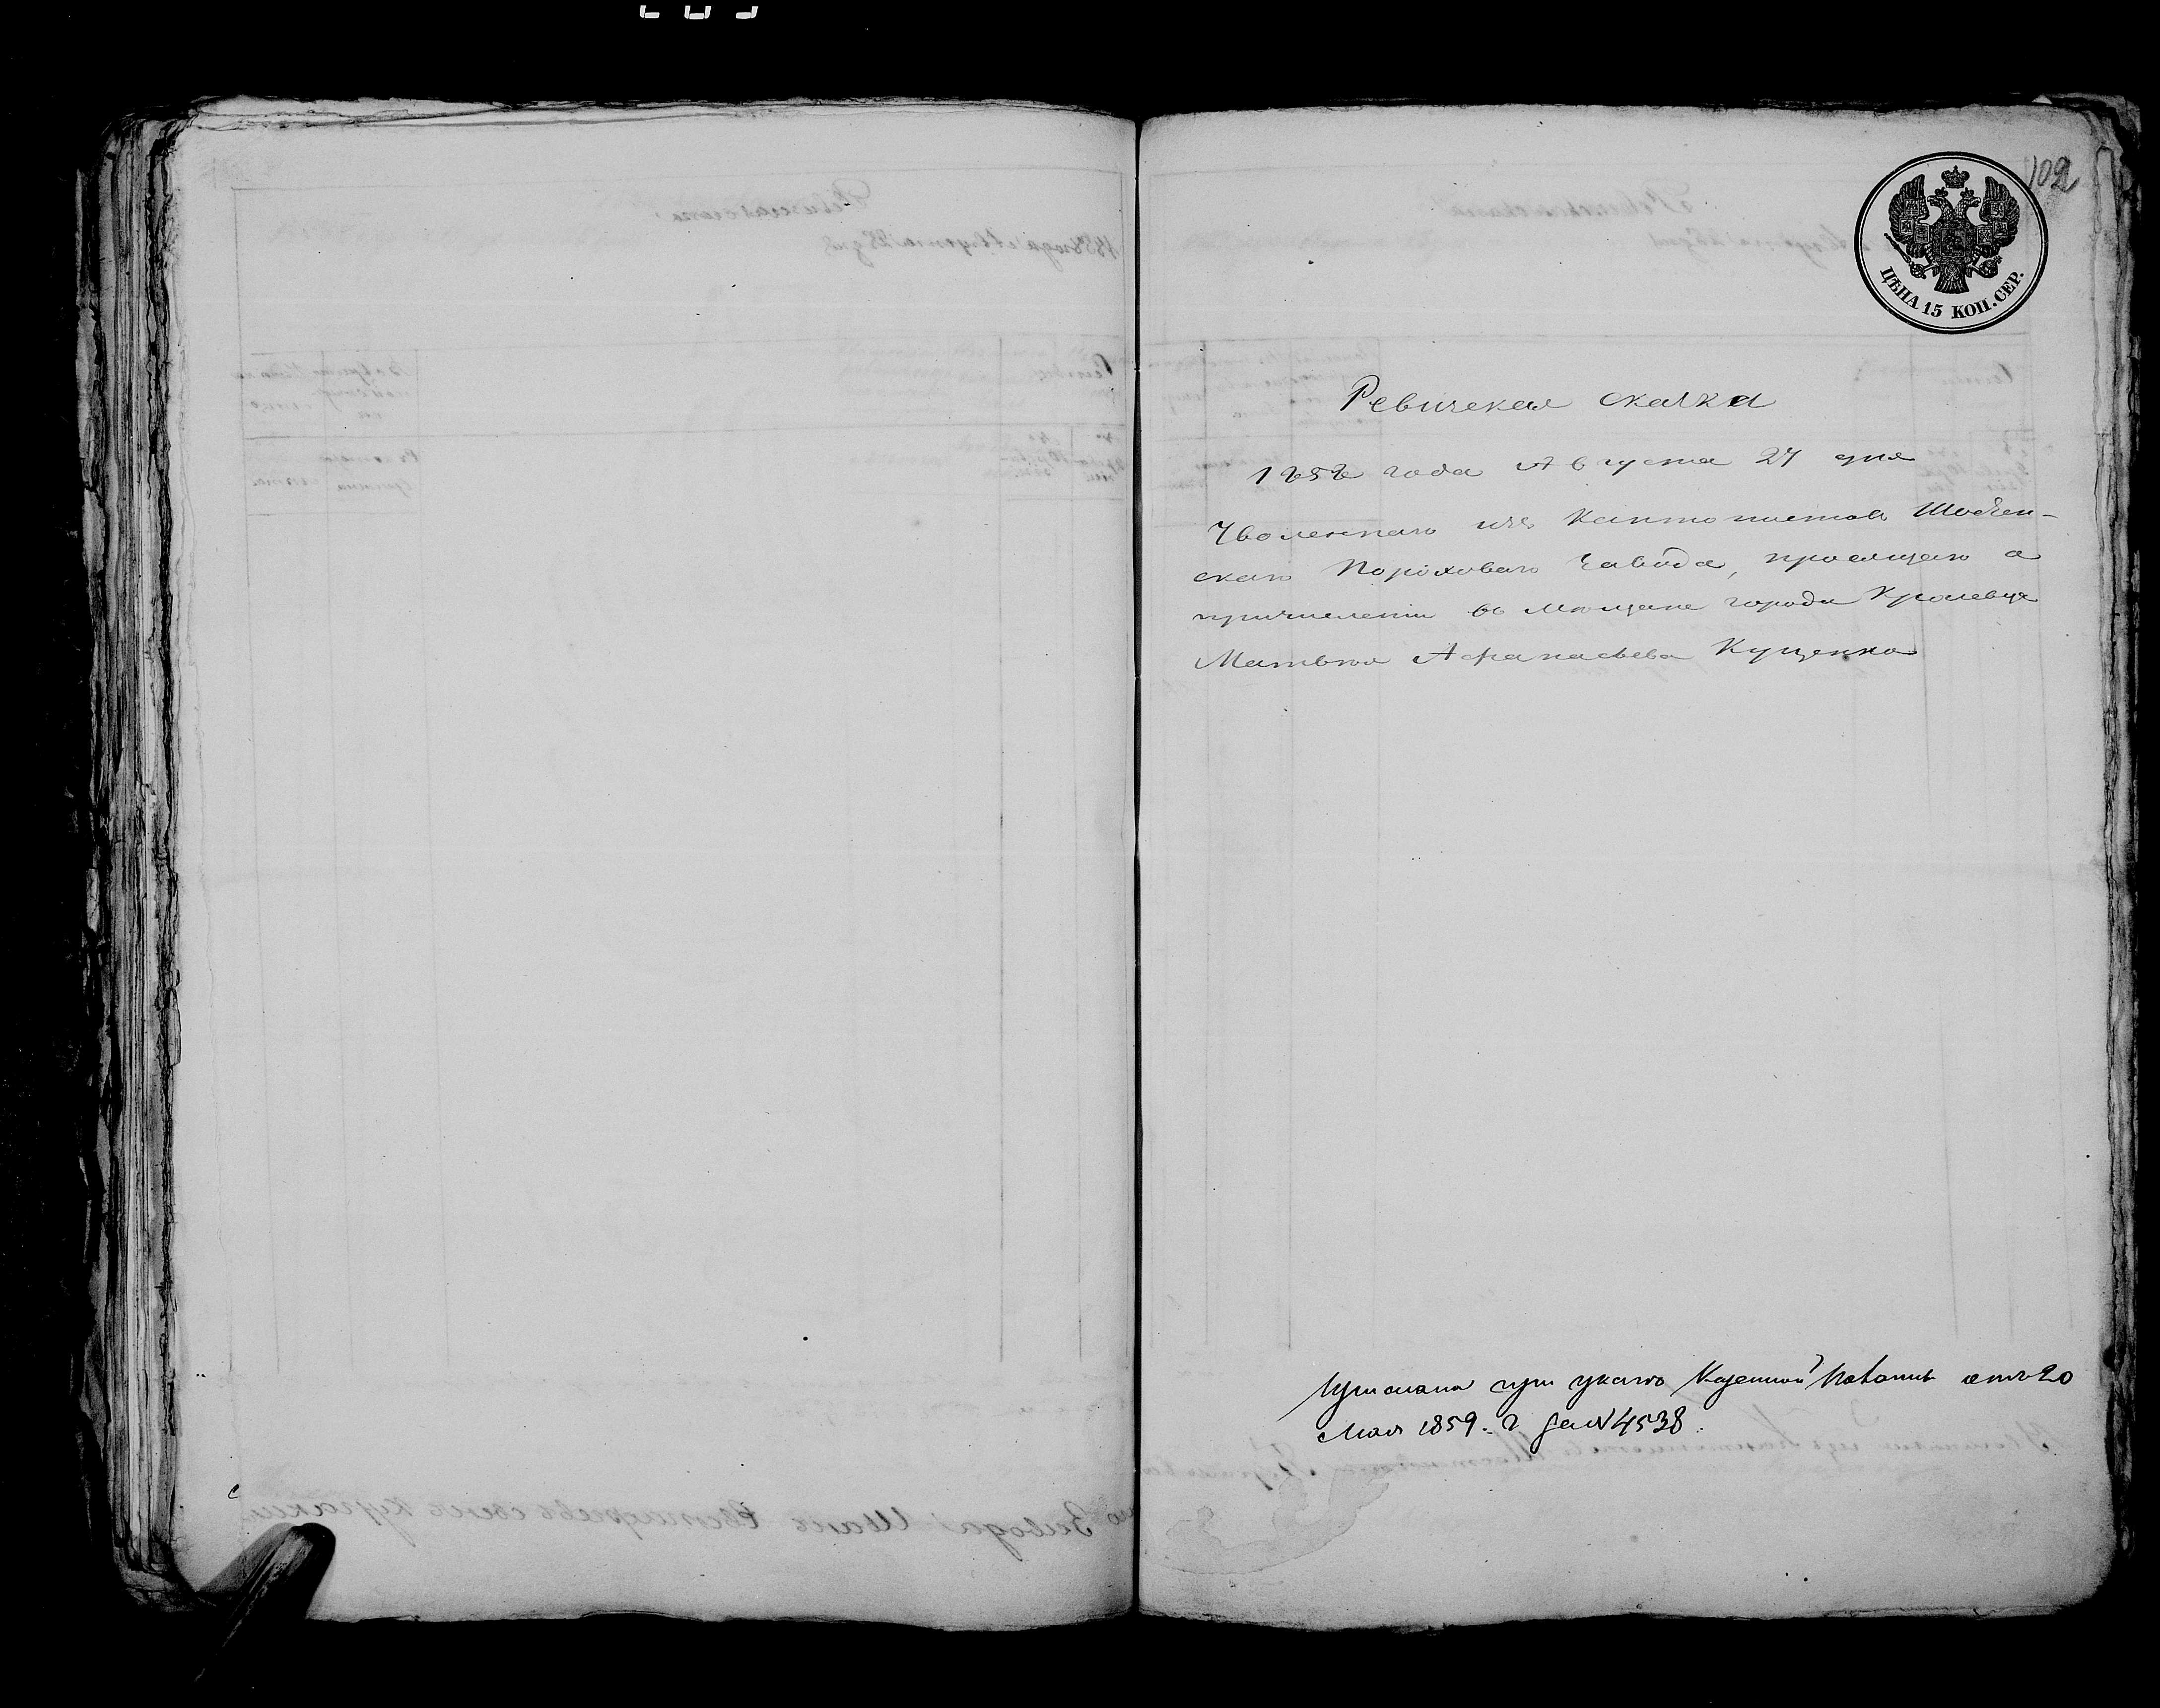 102
ЦѢНА 15 КОП. СЕР.
Ревизская сказка
1858 года Августа 27 дня
Уволеннаго изъ Кантонистовъ Шостен-
скаго Пороховаго Завода, просящаго о
причисленіи въ мѣщане города Кролевца
Матвѣя Афанасьева Кущенка
при указѣ Казенной Палаты отъ 20
Мая 1859 г. за № 4538.